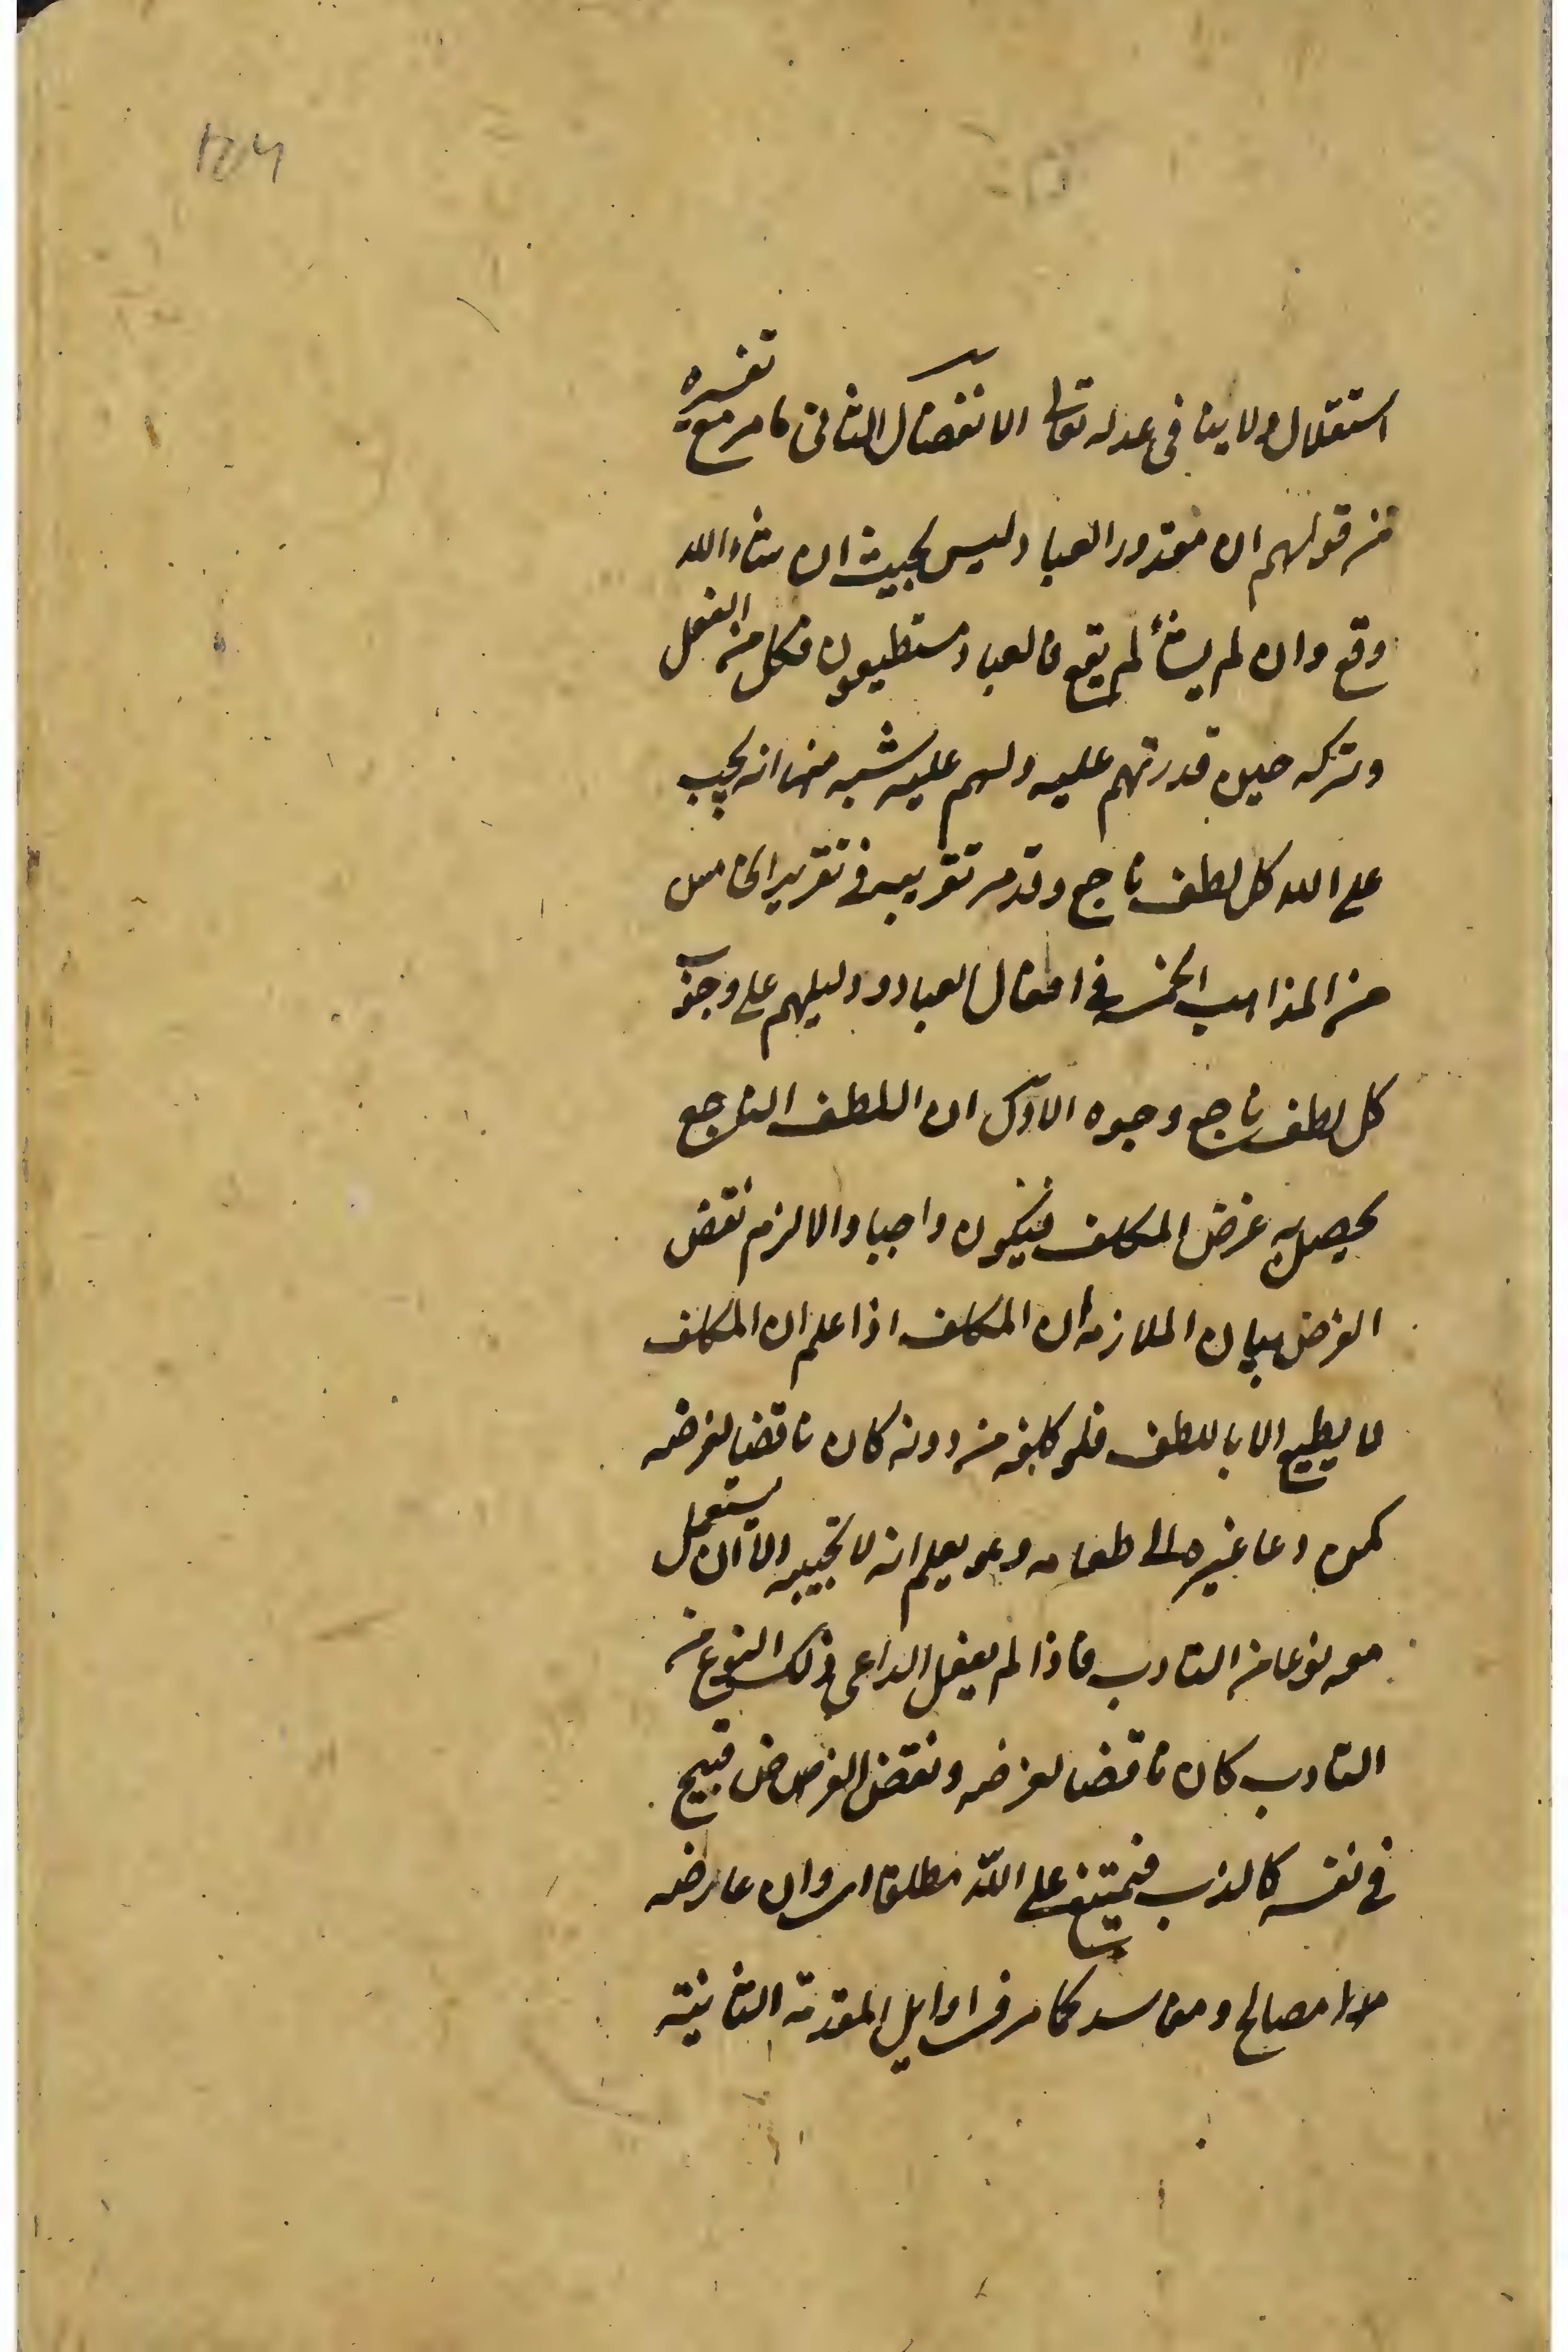 استقلال ولا ينافى عدله تعالى الانفصال الثانى ما مر مع تفسيره
من قولهم ان مقدور العباد ليس بحيث ان شاء الله
وقع وان لم يشأ لم يقع فالعباد مستطيعون فكل من الفعل
وتركه حين قدرتهم عليه ولهم عليه شبه منها انه يجب
على الله كل لطف ناجع وقد مر تقريبه فى تقرير الخامس
من المذاهب الخمسة فى افعال العباد ودليلهم على وجوب
كل لطف ناجع وجوه الاول ان اللطف الناجع
يحصل به غرض المكلف فيكون واجبا والا لزم نقض
الغرض بيان الملازمة ان المكلف اذا علم ان المكلف
لا يطيع الا باللطف فلو كلفه من دونه كان ناقضا لغرضه
كمن دعا غيره الى طعامه وهو يعلم انه لا يجيبه الا ان يستعمل
معه نوعا من التادب فاذا لم يفعل الداعى ذلك النوع من
التادب كان ناقضا لغرضه ونقض الغرض قبيح
فى نفسه كالكذب فيمتنع على الله مطلقا اى وان عارضه
مصالح ومفاسد كما مر فى اوايل المقدمة الثانية